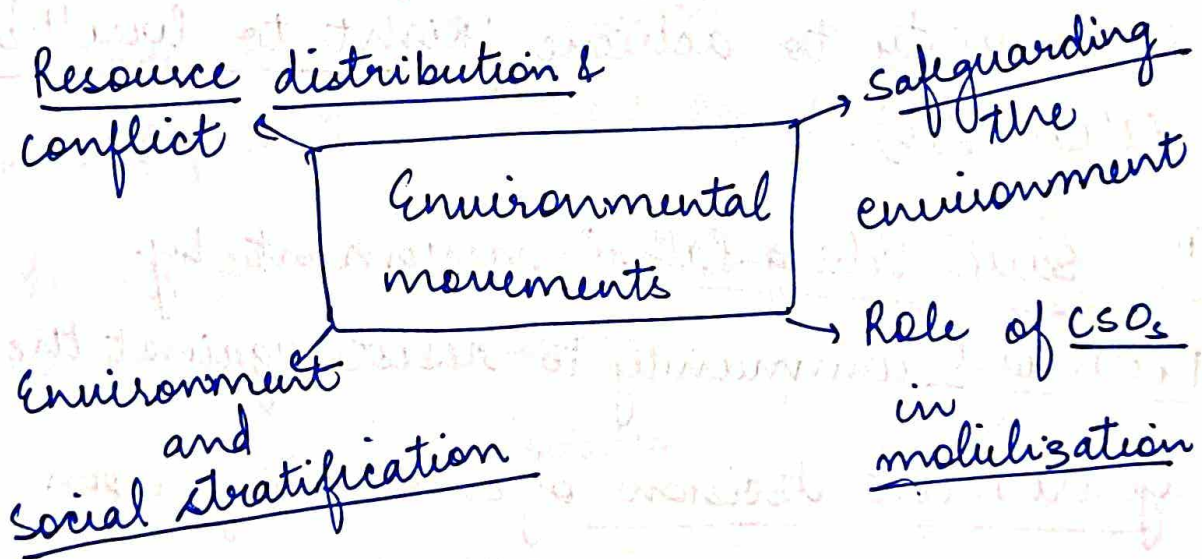 Resource distribution &
conflict
Safeguarding
the
environment
Environmental
movements
Environment
and
Social stratification
Role of CSOs
in
mobilization